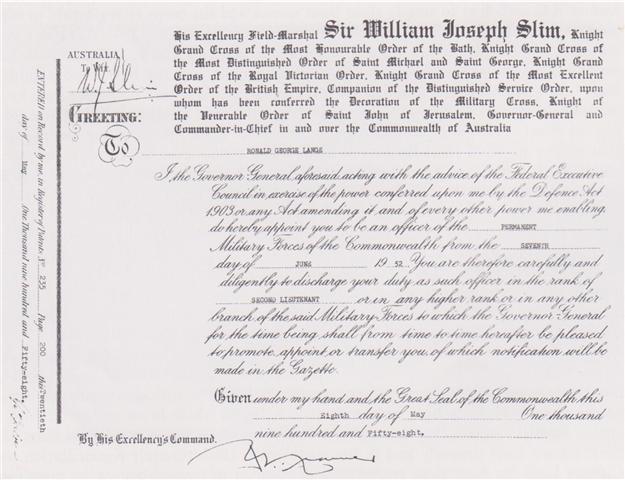 His Excellency Field-Marshal Sir William Joseph Slim, Knight
Grand Cross of the Most Honourable Order of the Bath, Knight Grand Cross of
the Most Distinguished Order of Saint Michael and Saint George, Knight Grand
Cross of the Royal Victorian Order, Knight Grand Cross of the Most Excellent
Order of the British Empire, Companion of the Distinguished Service Order, upon
whom has been conferred the Decoration of the Military Cross, Knight of
the Venerable Order of Saint John of Jerusalem, Governor-General and
Commander-in-Chief in and over the Commonwealth of Australia
AUSTRALIA
To Wit.
W J Slim
GREETING:
To
RONALD GEORGE LANGE
I, the Governor General aforesaid, acting with the advice of the Federal Executive
Council in exercise of the power conferred upon me by the Defence Act
1903 or any Act amending it and of every other power me enabling,
do hereby appoint you to be an officer of the PERMANENT
Military Forces of the Commonwealth from the SEVENTH
day of JUNE 1952 You are therefore carefully and
diligently to discharge your duty as such officer in the rank of
SECOND LIEUTENANT or in any higher rank or in any other
branch of the said Military Forces to which the Governor-General
for the time being shall from time to time hereafter be pleased
to promote, appoint or transfer you, of which notification will be
made in the Gazette.
Given under my hand and the Great Seal of the Commonwealth this
Eighth day of May One thousand
nine hundred and Fifty-eight.
By His Excellency's Command.
ENTERED on Record by me in Register of Patents No 235 Page 200 this Twentieth
day of May One Thousand nine hundred and Fifty-eight,